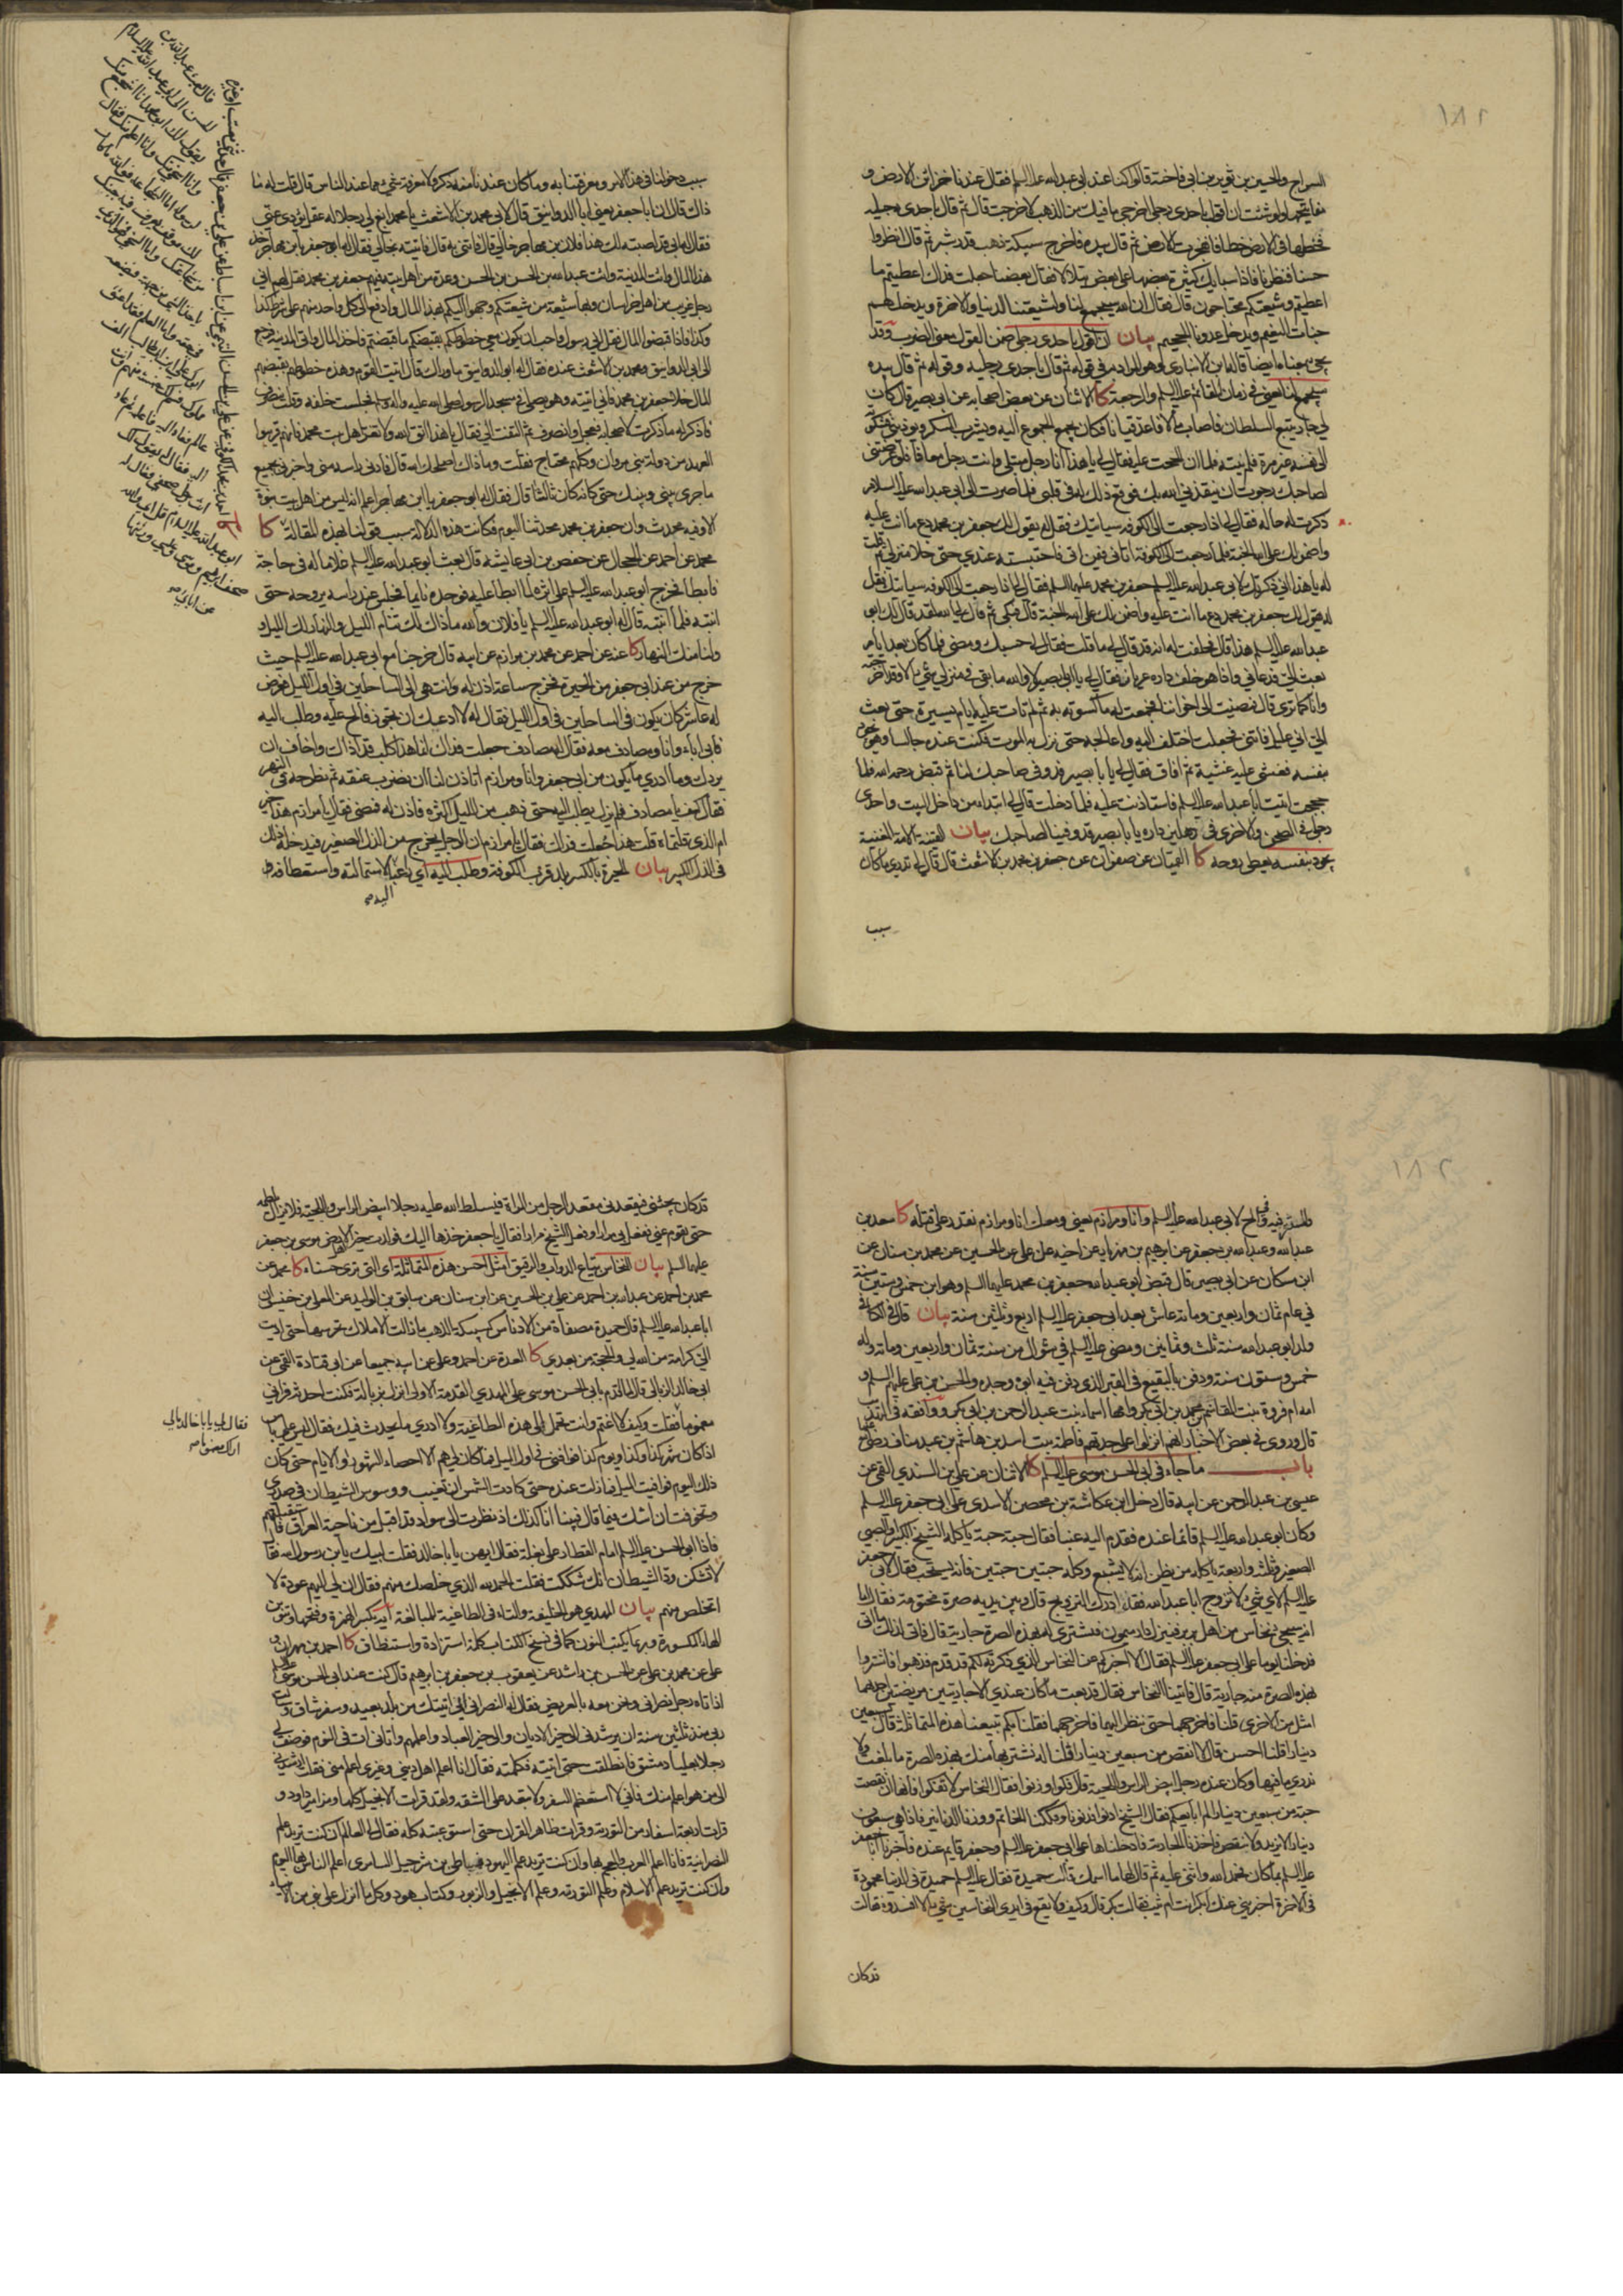 ١٨١
السراج والحسين بن ثوير بن ابي فاختة قالوا كنا عند ابي عبد الله عليه السلم فقال عندنا خزائن الارض و
مفاتيحها ولو شئت ان اقول باحدى رجلي اخرجي ما فيك من الذهب لاخرجت قال ثم قال باحدى رجليه
فخطها في الارض خطا فانفرجت الارض ثم قال بيده فاخرج سبيكة ذهب قدر شبر ثم قال انظروا
حسنا فنظرنا فاذا سبايك كثيرة بعضها على بعض يتلالأ فقال بعضنا جعلت فداك اعطيتم ما
اعطيتم وشيعتكم محتاجون قال فقال ان الله سيجمع لنا ولشيعتنا الدنيا والاخرة ويدخلهم
جنات النعيم ويدخل عدونا الجحيم بيان ان اقول باحدى رجلي ضمن القول معنى الضرب وقد
يجيء بمعناه ايضا قاله ابن الانباري وهو المراد به في قوله ثم قال باحدى رجليه وقوله ثم قال بيده
سيجمع لنا يعني في زمان القائم عليه السلم والرجعة كا الاثنان عن بعض اصحابه عن ابي بصير قال كان
لي جار يتبع السلطان فاصاب مالا فاعد قيانا فكان يجمع الجموع اليه ويشرب المسكر ويوذيني فشكوته
الى نفسه غير مرة فلم ينته فلما ان الححت عليه فقال لي يا هذا انا رجل مبتلى وانت رجل معافى فلو عرضتني
لصاحبك رجوت ان ينقذني الله بك فوقع ذلك له في قلبي فلما صرت الى ابي عبد الله عليه السلام
ذكرت له حاله فقال لي اذا رجعت الى الكوفة سياتيك فقل له يقول لك جعفر بن محمد دع ما انت عليه
واضمن لك على الله الجنة فلما رجعت الى الكوفة اتاني فيمن اتى فاحتبسته عندي حتى خلا منزلي ثم قلت
له يا هذا اني ذكرتك لابي عبد الله عليه السلم جعفر بن محمد عليهما السلم فقال لي اذا رجعت الى الكوفة سياتيك فقل
له يقول لك جعفر بن محمد دع ما انت عليه واضمن لك على الله الجنة قال فبكى ثم قال لي الله لقد قال لك ابو
عبد الله عليه السلم هذا قال فحلفت له انه قد قال لي ما قلت فقال لي حسبك ومضى فلما كان بعد ايام
بعث الي فدعاني واذا هو خلف داره عريان فقال لي يا ابا بصير لا والله ما بقي في منزلي شيء الا وقد اخرجته
وانا كما ترى قال فمضيت الى اخواننا فجمعت له ما كسوته به ثم لم تات عليه ايام يسيرة حتى بعث
الي اني عليل فاتني فجعلت اختلف اليه واعالجه حتى نزل به الموت فكنت عنده جالسا وهو يجود
بنفسه فغشي عليه غشية ثم افاق فقال لي يا با بصير قد وفى صاحبك لنا ثم قبض رحمه الله فلما
حججت اتيت ابا عبد الله عليه السلم فاستاذنت عليه فلما دخلت قال لي ابتداء من داخل البيت واحدى
رجلي في الصحن والاخرى في دهليز داره يا با بصير قد وفينا لصاحبك بيان القينة الامة المغنية
يجود بنفسه يعطي روحه كا القميان عن صفوان عن جعفر بن محمد بن الاشعث قال قال لي تدري ما كان
سبب
سبب دخولنا في هذا الامر ومعرفتنا به وما كان عندنا منه ذكر ولا معرفة شيء مما عند الناس قال قلت له ما
ذاك قال ان ابا جعفر يعني ابا الدوانيق قال لابي محمد بن الاشعث يا محمد ابغ لي رجلا له عقل يؤدي عني
فقال له ابي قد اصبته لك هذا فلان بن مهاجر خالي قال فاتني به قال فاتيته بخالي فقال له ابو جعفر يا بن مهاجر خذ
هذا المال وائت المدينة وائت عبد الله بن الحسن بن الحسن وعدة من اهل بيته فيهم جعفر بن محمد فقل لهم اني
رجل غريب من اهل خراسان وبها شيعة من شيعتكم وجهوا اليكم بهذا المال وادفع الى كل واحد منهم على شرط كذا
وكذا فاذا قبضوا المال فقل اني رسول واحب ان يكون معي خطوطكم بقبضكم ما قبضتم فاخذ المال واتى المدينة فرجع
الى ابي الدوانيق ومحمد بن الاشعث عنده فقال له ابو الدوانيق ما وراك قال اتيت القوم وهذه خطوطهم بقبضهم
المال خلا جعفر بن محمد فاني اتيته وهو يصلي في مسجد الرسول صلى الله عليه واله فجلست خلفه وقلت ينصرف
فاذكر له ما ذكرت لاصحابه فعجل وانصرف ثم التفت الي فقال يا هذا اتق الله ولا تغر اهل بيت محمد فانهم قريبوا
العهد من دولة بني مروان وكلهم محتاج فقلت وما ذاك اصلحك الله قال فادنى راسه مني واخبرني بجميع
ما جرى بيني وبينك حتى كانه كان ثالثنا قال فقال له ابو جعفر يا ابن مهاجر اعلم انه ليس من اهل بيت نبوة
الا وفيه محدث وان جعفر بن محمد محدثنا اليوم فكانت هذه الدلالة سبب قولنا بهذه المقالة كا
محمد عن احمد عن الحجال عن حفص بن ابي عايشة قال بعث ابو عبد الله عليه السلم غلاما له في حاجة
فابطا فخرج ابو عبد الله عليه السلم على اثره لما ابطا عليه فوجده نايما فجلس عند راسه يروحه حتى
انتبه فلما انتبه قال له ابو عبد الله عليه السلم يا فلان والله ما ذاك لك تنام الليل والنهار لك الليل و
ولنا منك النهار كا عنه عن احمد عن محمد بن مرازم عن ابيه قال خرجنا مع ابي عبد الله عليه السلم حيث
خرج من عند ابي جعفر من الحيرة فخرج ساعة اذن له وانتهى الى الساحلين في اول الليل فعرض
له عاشر كان يكون في الساحلين في اول الليل فقال له لا ادعك ان تجوز فالح عليه وطلب اليه
فابى اباء وانا ومصادف معه فقال له مصادف جعلت فداك انما هذا كلب قد اذاك واخاف ان
يردك وما ادري ما يكون من ابي جعفر وانا ومرازم اتاذن لنا ان نضرب عنقه ثم نطرحه في النهر
فقال كف يا مصادف فلم يزل يطلب اليه حتى ذهب من الليل اكثره فاذن له فمضى فقال يا مرازم هذا خير
ام الذي قلتماه قلت هذا جعلت فداك فقال يا مرازم ان الرجل يخرج من الذل الصغير فيدخله ذلك
في الذل الكبير بيان الحيرة بالكسر بلد قرب الكوفة وطلب اليه اي راغبا لاستمالته واستعطافه
١٨٢
عبد الله وعبد الله بن جعفر عن ابرهيم بن مهزيار عن اخيه علي عن الحسين عن محمد بن سنان عن
ابن مسكان عن ابي بصير قال قبض ابو عبد الله جعفر بن محمد عليهما السلم وهو ابن خمس وستين سنة
في عام ثمان واربعين ومائة عاش بعد ابي جعفر عليه السلم اربع وثلثين سنة بيان قال في الكافي
ولد ابو عبد الله سنة ثلث وثمانين ومضى عليه السلم في شوال من سنة ثمان واربعين ومائة وله
خمس وستون سنة ودفن بالبقيع في القبر الذي دفن فيه ابوه وجده والحسن بن علي عليهم السلم و
امه ام فروة بنت القاسم بن محمد بن ابي بكر وامها اسماء بنت عبد الرحمن بن ابي بكر ووافقه في التهذيب
باب ما جاء في ابي الحسن موسى عليه السلم كا الاثنان عن علي بن السندي القمي عن
عيسى بن عبد الرحمن عن ابيه قال دخل ابن عكاشة بن محصن الاسدي على ابي جعفر عليه السلم
وكان ابو عبد الله عليه السلم قائما عنده فقدم اليه عنبا فقال حبة حبة ياكله الشيخ الكبير والصبي
الصغير وثلثة واربعة ياكله من يظن انه لا يشبع وكله حبتين حبتين فانه يستحب فقال لابي جعفر
عليه السلم لاي شيء لا تزوج ابا عبد الله فقد ادرك التزويج قال وبين يديه صرة مختومة فقال اما
انه سيجيء نخاس من اهل بربر فينزل دار ميمون فنشتري له بهذه الصرة جارية قال فاتى لذلك ما اتى
فدخلنا يوما على ابي جعفر عليه السلم فقال الا اخبركم عن النخاس الذي ذكرته لكم قد قدم فاذهبوا فاشتروا
بهذه الصرة منه جارية قال فاتينا النخاس فقال قد بعت ما كان عندي الا جاريتين مريضتين احديهما
امثل من الاخرى قلنا فاخرجهما حتى ننظر اليهما فاخرجهما فقلنا بكم تبيعنا هذه المتماثلة قال بسبعين
دينارا قلنا احسن قال لا انقص من سبعين دينارا قلنا له نشتريها منك بهذه الصرة ما بلغت ولا
ندري ما فيها وكان عنده رجل ابيض الراس واللحية قال فكوا وزنوا فقال النخاس لا تفكوا فانها ان نقصت
حبة من سبعين دينارا لم ابايعكم فقال الشيخ ادنوا فدنونا وفككنا الخاتم ووزنا الدنانير فاذا هي سبعون
دينارا لا تزيد ولا تنقص فاخذنا الجارية فادخلناها على ابي جعفر عليه السلم وجعفر قايم عنده فاخبرنا ابا جعفر
عليه السلم بما كان فحمد الله واثنى عليه ثم قال لها ما اسمك قالت حميدة فقال عليه السلم حميدة في الدنيا محمودة
في الاخرة اخبريني عنك ابكر انت ام ثيب قالت بكر قال وكيف ولا يقع في ايدي النخاسين شيء الا افسدوه فقالت
قد كان
قد كان يجيئني فيقعد مني مقعد الرجل من المراة فيسلط الله عليه رجلا ابيض الراس واللحية فلا يزال يلطمه
حتى يقوم عني ففعل بي مرارا وفعل الشيخ مرارا فقال يا جعفر خذها اليك فولدت خير اهل الارض موسى بن جعفر
عليهما السلم بيان النخاس بياع الدواب والرقيق امثل احسن هذه المتماثلة اي التي ترى حسناء كا محمد عن
محمد بن احمد عن عبد الله بن احمد عن علي بن الحسين عن ابن سنان عن سابق بن الوليد عن المعلى بن خنيس ان
ابا عبد الله عليه السلم قال حميدة مصفاة من الادناس كسبيكة الذهب ما زالت الاملاك تحرسها حتى اديت
الي كرامة من الله لي وللحجة من بعدي كا العدة عن احمد وعلي عن ابيه جميعا عن ابي قتادة القمي عن
ابي خالد الزبالي قال لما اقدم بابي الحسن موسى على المهدي القدمة الاولى نزل بزبالة فكنت احدثه فراني
مغموما فقلت وكيف لا اغتم وانت تحمل الى هذه الطاغية ولا ادري ما يحدث فيك فقال ليس علي باس
اذا كان شهر كذا وكذا ويوم كذا فوافني في اول الميل فما كان لي هم الا احصاء الشهور والايام حتى كان
ذلك اليوم فوافيت الميل فما زلت عنده حتى كادت الشمس ان تغيب ووسوس الشيطان في صدري
وتخوفت ان اشك فيما قال فبينا انا كذلك اذ نظرت الى سواد قد اقبل من ناحية العراق فاستقبلتهم
فاذا ابو الحسن عليه السلم امام القطار على بغلة فقال ايهن يا ابا خالد فقلت لبيك يا بن رسول الله فقال
لا تشكن ود الشيطان انك شككت فقلت الحمد لله الذي خلصك منهم فقال ان لي اليهم عودة لا
اتخلص منهم بيان المهدي هو الخليفة والتاء في الطاغية للمبالغة ايه بكسر الهمزة وفتحها وتنوين
الهاء المكسورة وربما يكتب النون كما في نسخ الكتاب كلمة استزادة واستنطاق كا احمد بن مهران و
علي عن محمد بن علي عن الحسن بن راشد عن يعقوب بن جعفر بن ابرهيم قال كنت عند ابي الحسن موسى عليه السلم
اذ اتاه رجل نصراني ونحن معه بالعريض فقال له النصراني اني اتيتك من بلد بعيد وسفر شاق وسالت
ربي منذ ثلثين سنة ان يرشدني الى خير الاديان والى خير العباد واعلمهم واتاني ات في النوم فوصف لي
رجلا بعليا دمشق فانطلقت حتى اتيته فكلمته فقال انا اعلم اهل ديني وغيري اعلم مني فقلت ارشدني
الى من هو اعلم منك فاني لا استعظم السفر ولا تبعد على الشقة ولقد قرات الانجيل كلها ومزامير داود و
قرات اربعة اسفار من التورية وقرات ظاهر القران حتى استوعبته كله فقال لي العالم ان كنت تريد علم
النصرانية فانا اعلم العرب والعجم بها وان كنت تريد علم اليهود فباطي بن شرحبيل السامري اعلم الناس بها اليوم
وان كنت تريد علم الاسلام وعلم التورية وعلم الانجيل والزبور وكتاب هود وكل ما انزل على نبي من الانبياء
فقال لي يا با خالد مالي
اراك مغموما صح